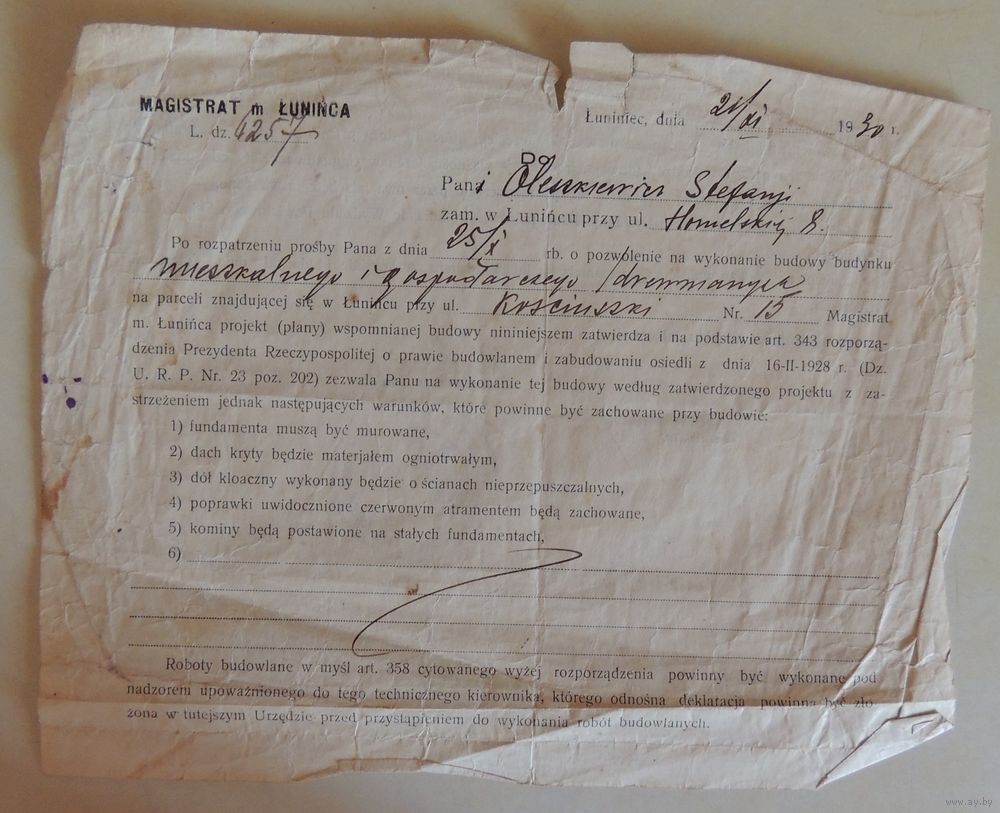 MAGISTRAT m ŁUNIŃCA
L. dz. 6257
Łuniniec, dnia 21/XI 1930 r.
Do
Pani Oleszkiewicz Stefanji
zam. w Łunińcu przy ul. Homelskiej 8.
Po rozpatrzeniu prośby Pana z dnia 25/X rb. o pozwolenie na wykonanie budowy budynku
mieszkalnego i gospodarczego /drewnianych
na parceli znajdującej się w Łunińcu przy ul. Kościuszki Nr. 15 Magistrat
m. Łunińca projekt (plany) wspomnianej budowy nininiejszem zatwierdza i na podstawie art. 343 rozporzą-
dzenia Prezydenta Rzeczypospolitej o prawie budowlanem i zabudowaniu osiedli z dnia 16-II-1928 r. (Dz.
U. R. P. Nr. 23 poz. 202) zezwala Panu na wykonanie tej budowy według zatwierdzonego projektu z za-
strzeżeniem jednak następujących warunków, które powinne być zachowane przy budowie:
1) fundamenta muszą być murowane,
2) dach kryty będzie materjałem ogniotrwałym,
3) dół kloaczny wykonany będzie o ścianach nieprzepuszczalnych,
4) poprawki uwidocznione czerwonym atramentem będą zachowane,
5) kominy będą postawione na stałych fundamentach,
6)
Roboty budowlane w myśl art. 358 cytowanego wyżej rozporządzenia powinny być wykonane pod
nadzorem upoważnionego do tego technicznego kierownika, którego odnośna deklatacja powinna być zło
żona w tutejszym Urzędzie przed przystąpieniem do wykonania robót budowlanych.
www.ay.by